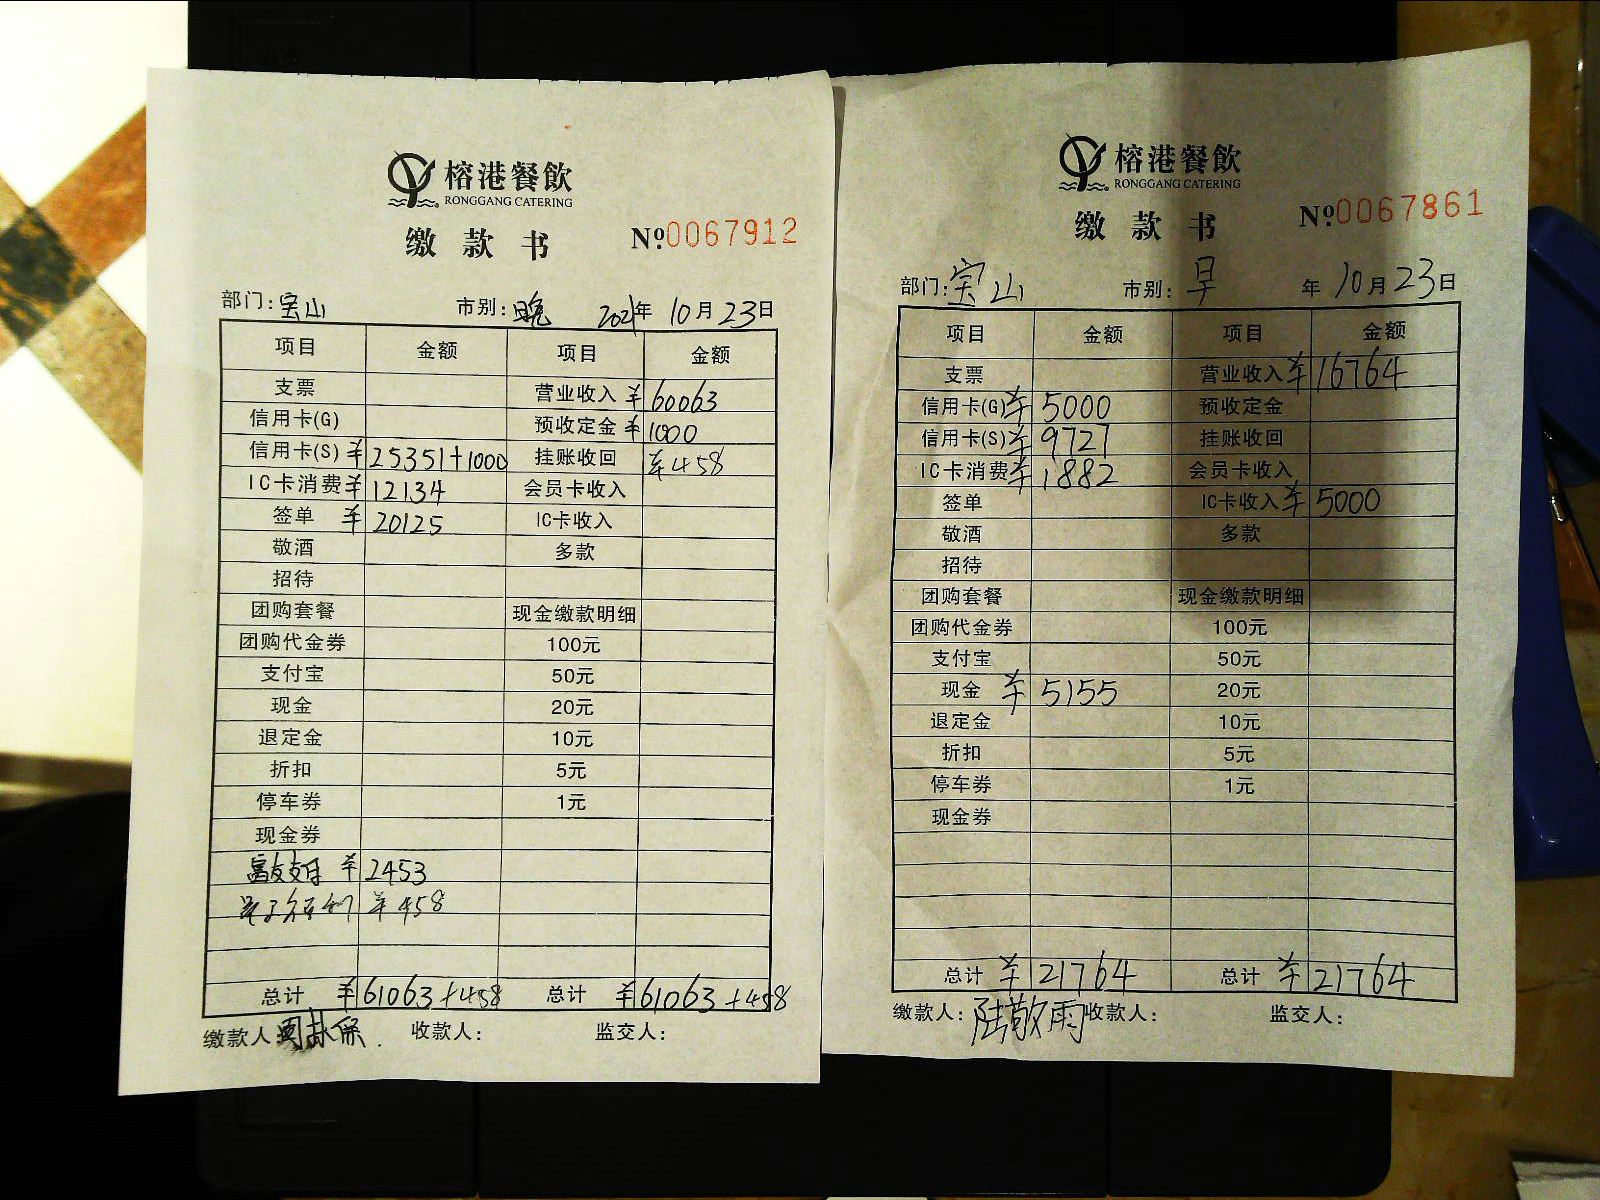 榕港餐飲
RONGGANG CATERING
缴款书 №0067912
部门:宝山 市别:晚 2021年10月23日
项目 金额 项目 金额
支票 营业收入 ¥60063
信用卡(G) 预收定金 ¥1000
信用卡(S) ¥25351+1000 挂账收回 ¥458
IC卡消费 ¥12134 会员卡收入
签单 ¥20125 IC卡收入
敬酒 多款
招待
团购套餐 现金缴款明细
团购代金券 100元
支付宝 50元
现金 20元
退定金 10元
折扣 5元
停车券 1元
现金券
富友支付 ¥2453
¥458
总计 ¥61063+458 总计 ¥61063+458
缴款人: 收款人: 监交人:
榕港餐飲
RONGGANG CATERING
缴款书 №0067861
部门:宝山 市别:早 年10月23日
项目 金额 项目 金额
支票 营业收入 ¥16764
信用卡(G) ¥5000 预收定金
信用卡(S) ¥9727 挂账收回
IC卡消费 ¥1882 会员卡收入
签单 IC卡收入 ¥5000
敬酒 多款
招待
团购套餐 现金缴款明细
团购代金券 100元
支付宝 50元
现金 ¥5155 20元
退定金 10元
折扣 5元
停车券 1元
现金券
总计 ¥21764 总计 ¥21764
缴款人:陆敬雨 收款人: 监交人: